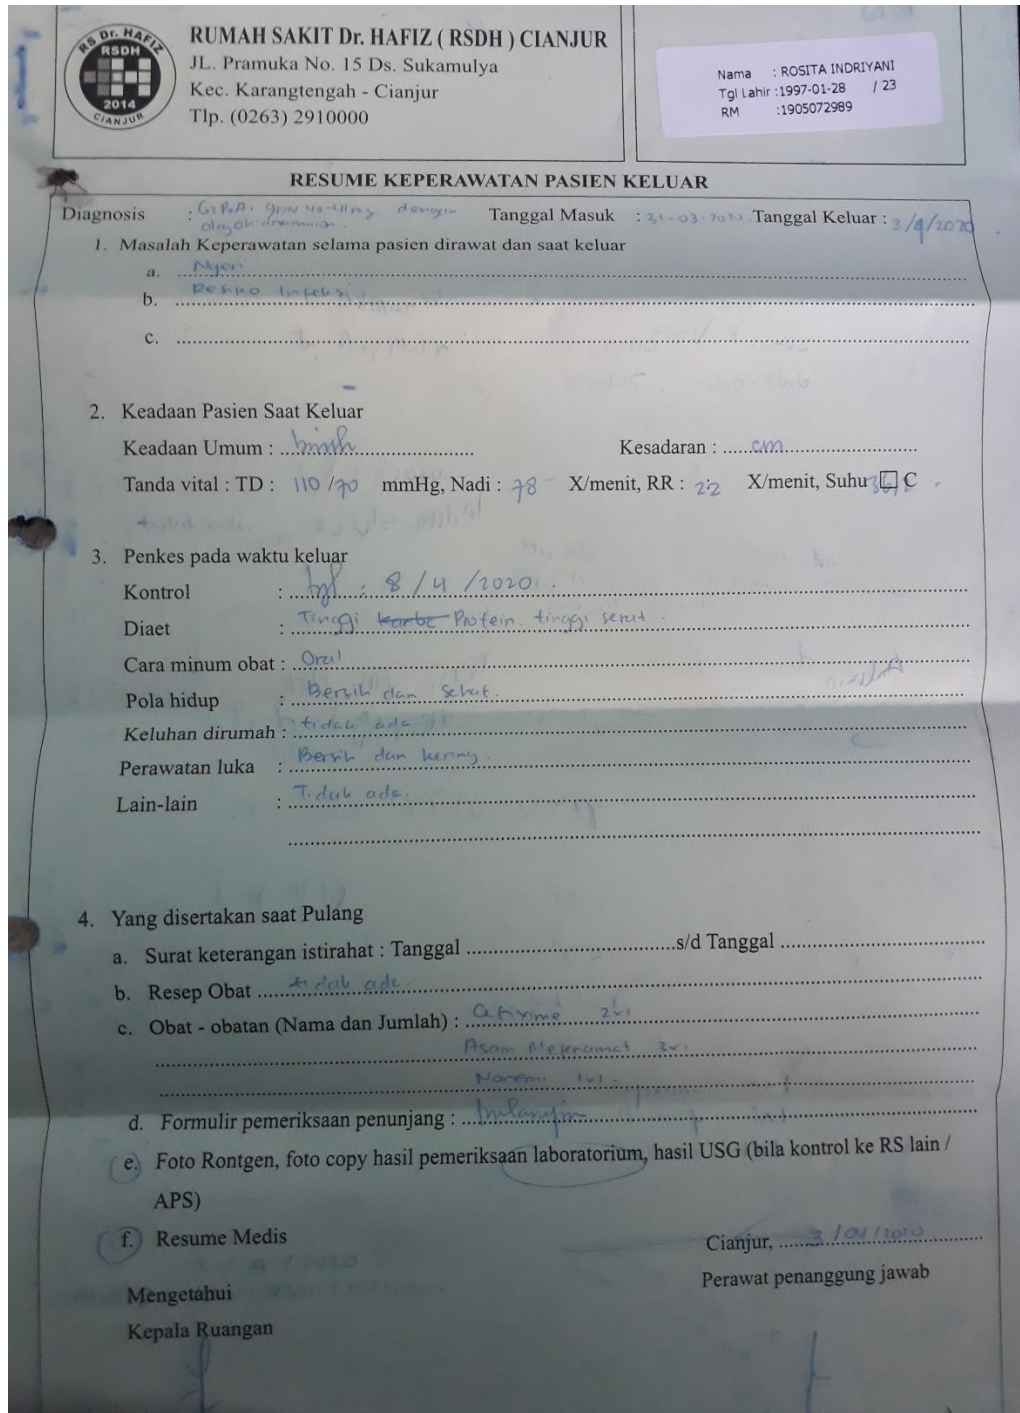 RS Dr. HAFIZ
RSDH
2014
CIANJUR
RUMAH SAKIT Dr. HAFIZ ( RSDH ) CIANJUR
JL. Pramuka No. 15 Ds. Sukamulya
Kec. Karangtengah - Cianjur
Tlp. (0263) 2910000
Nama : ROSITA INDRIYANI
Tgl Lahir :1997-01-28 / 23
RM :1905072989
RESUME KEPERAWATAN PASIEN KELUAR
Diagnosis : dengan Tanggal Masuk : 31-03-2020 Tanggal Keluar : 3/4/2020
1. Masalah Keperawatan selama pasien dirawat dan saat keluar
a. Nyeri
b. Resiko Infeksi
c.
2. Keadaan Pasien Saat Keluar
Keadaan Umum : Kesadaran : cm
Tanda vital : TD : 110/70 mmHg, Nadi : 78 X/menit, RR : 22 X/menit, Suhu C
3. Penkes pada waktu keluar
Kontrol : tgl : 8/4/2020
Diaet : Tinggi Protein. tinggi serat.
Cara minum obat : Oral
Pola hidup : Bersih dan Sehat.
Keluhan dirumah : tidak ada
Perawatan luka : Bersih dan kering.
Lain-lain : Tidak ada.
4. Yang disertakan saat Pulang
a. Surat keterangan istirahat : Tanggal s/d Tanggal
b. Resep Obat tidak ada
c. Obat - obatan (Nama dan Jumlah) : Cefixime 2x1
Asam Mefenamat 3x1
1x1
d. Formulir pemeriksaan penunjang :
e. Foto Rontgen, foto copy hasil pemeriksaan laboratorium, hasil USG (bila kontrol ke RS lain /
APS)
f. Resume Medis
Cianjur, 3/04/2020
Mengetahui
Perawat penanggung jawab
Kepala Ruangan